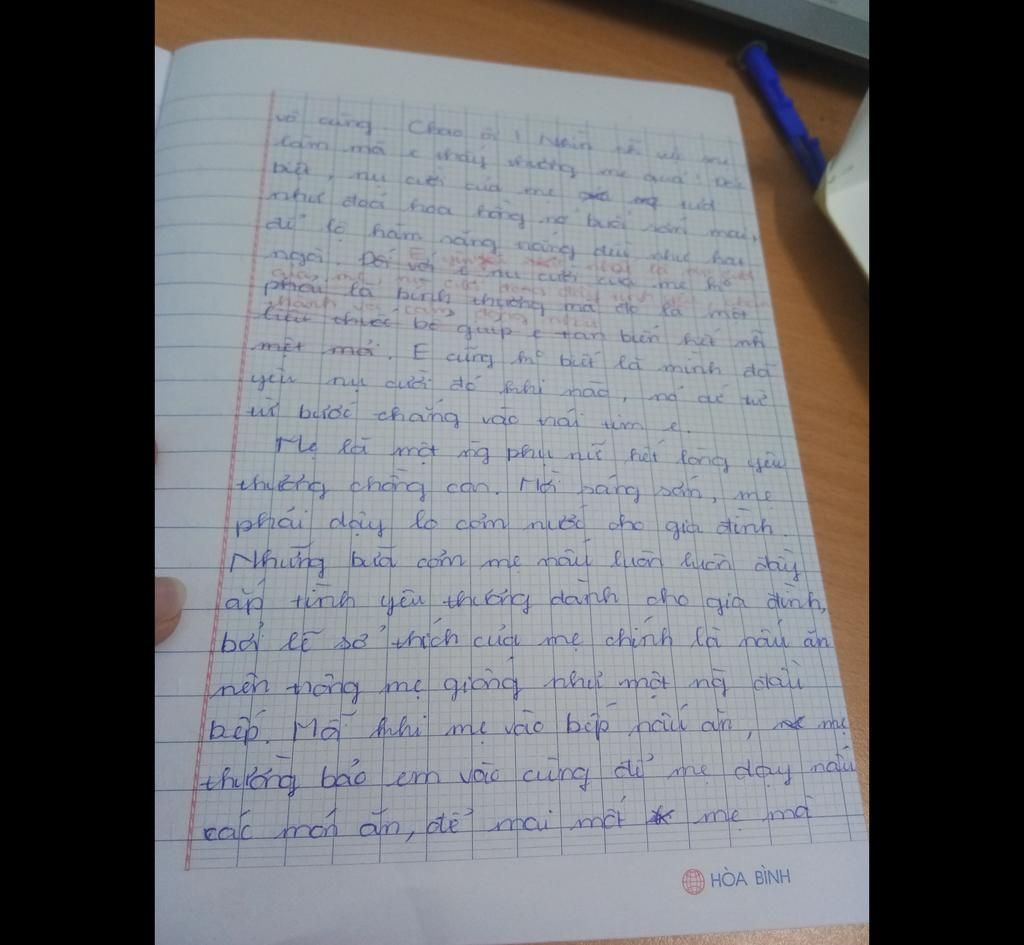 vô cùng. Chao ôi! Nhìn mẹ
lắm mà e thấy thương mẹ quá!
biệt, nụ cười của mẹ tươi
như đoá hoa hồng nở buổi sớm mai,
để lộ hàm răng trắng đều như hạt
ngô. Đối với e nụ cười của mẹ ko
phải là bình thường mà đó là một
liều thuốc bổ giúp e tan biến hết mọi
mệt mỏi. E cũng ko biết là mình đã
yêu nụ cười đó khi nào, nó cứ từ
từ bước chẳng vào trái tim e.
Mẹ là một ng phụ nữ hết lòng yêu
thương chồng con. Mỗi sáng sớm, mẹ
phải dậy lo cơm nước cho gia đình.
Những bữa cơm mẹ nấu luôn luôn đầy
ắp tình yêu thương dành cho gia đình,
bởi lẽ sở thích của mẹ chính là nấu ăn
nên trông mẹ giống như một ng đầu
bếp. Mỗi khi mẹ vào bếp nấu ăn, mẹ
thường bảo em vào cùng để mẹ dạy nấu
các món ăn, để mai mốt mẹ mà
HÒA BÌNH